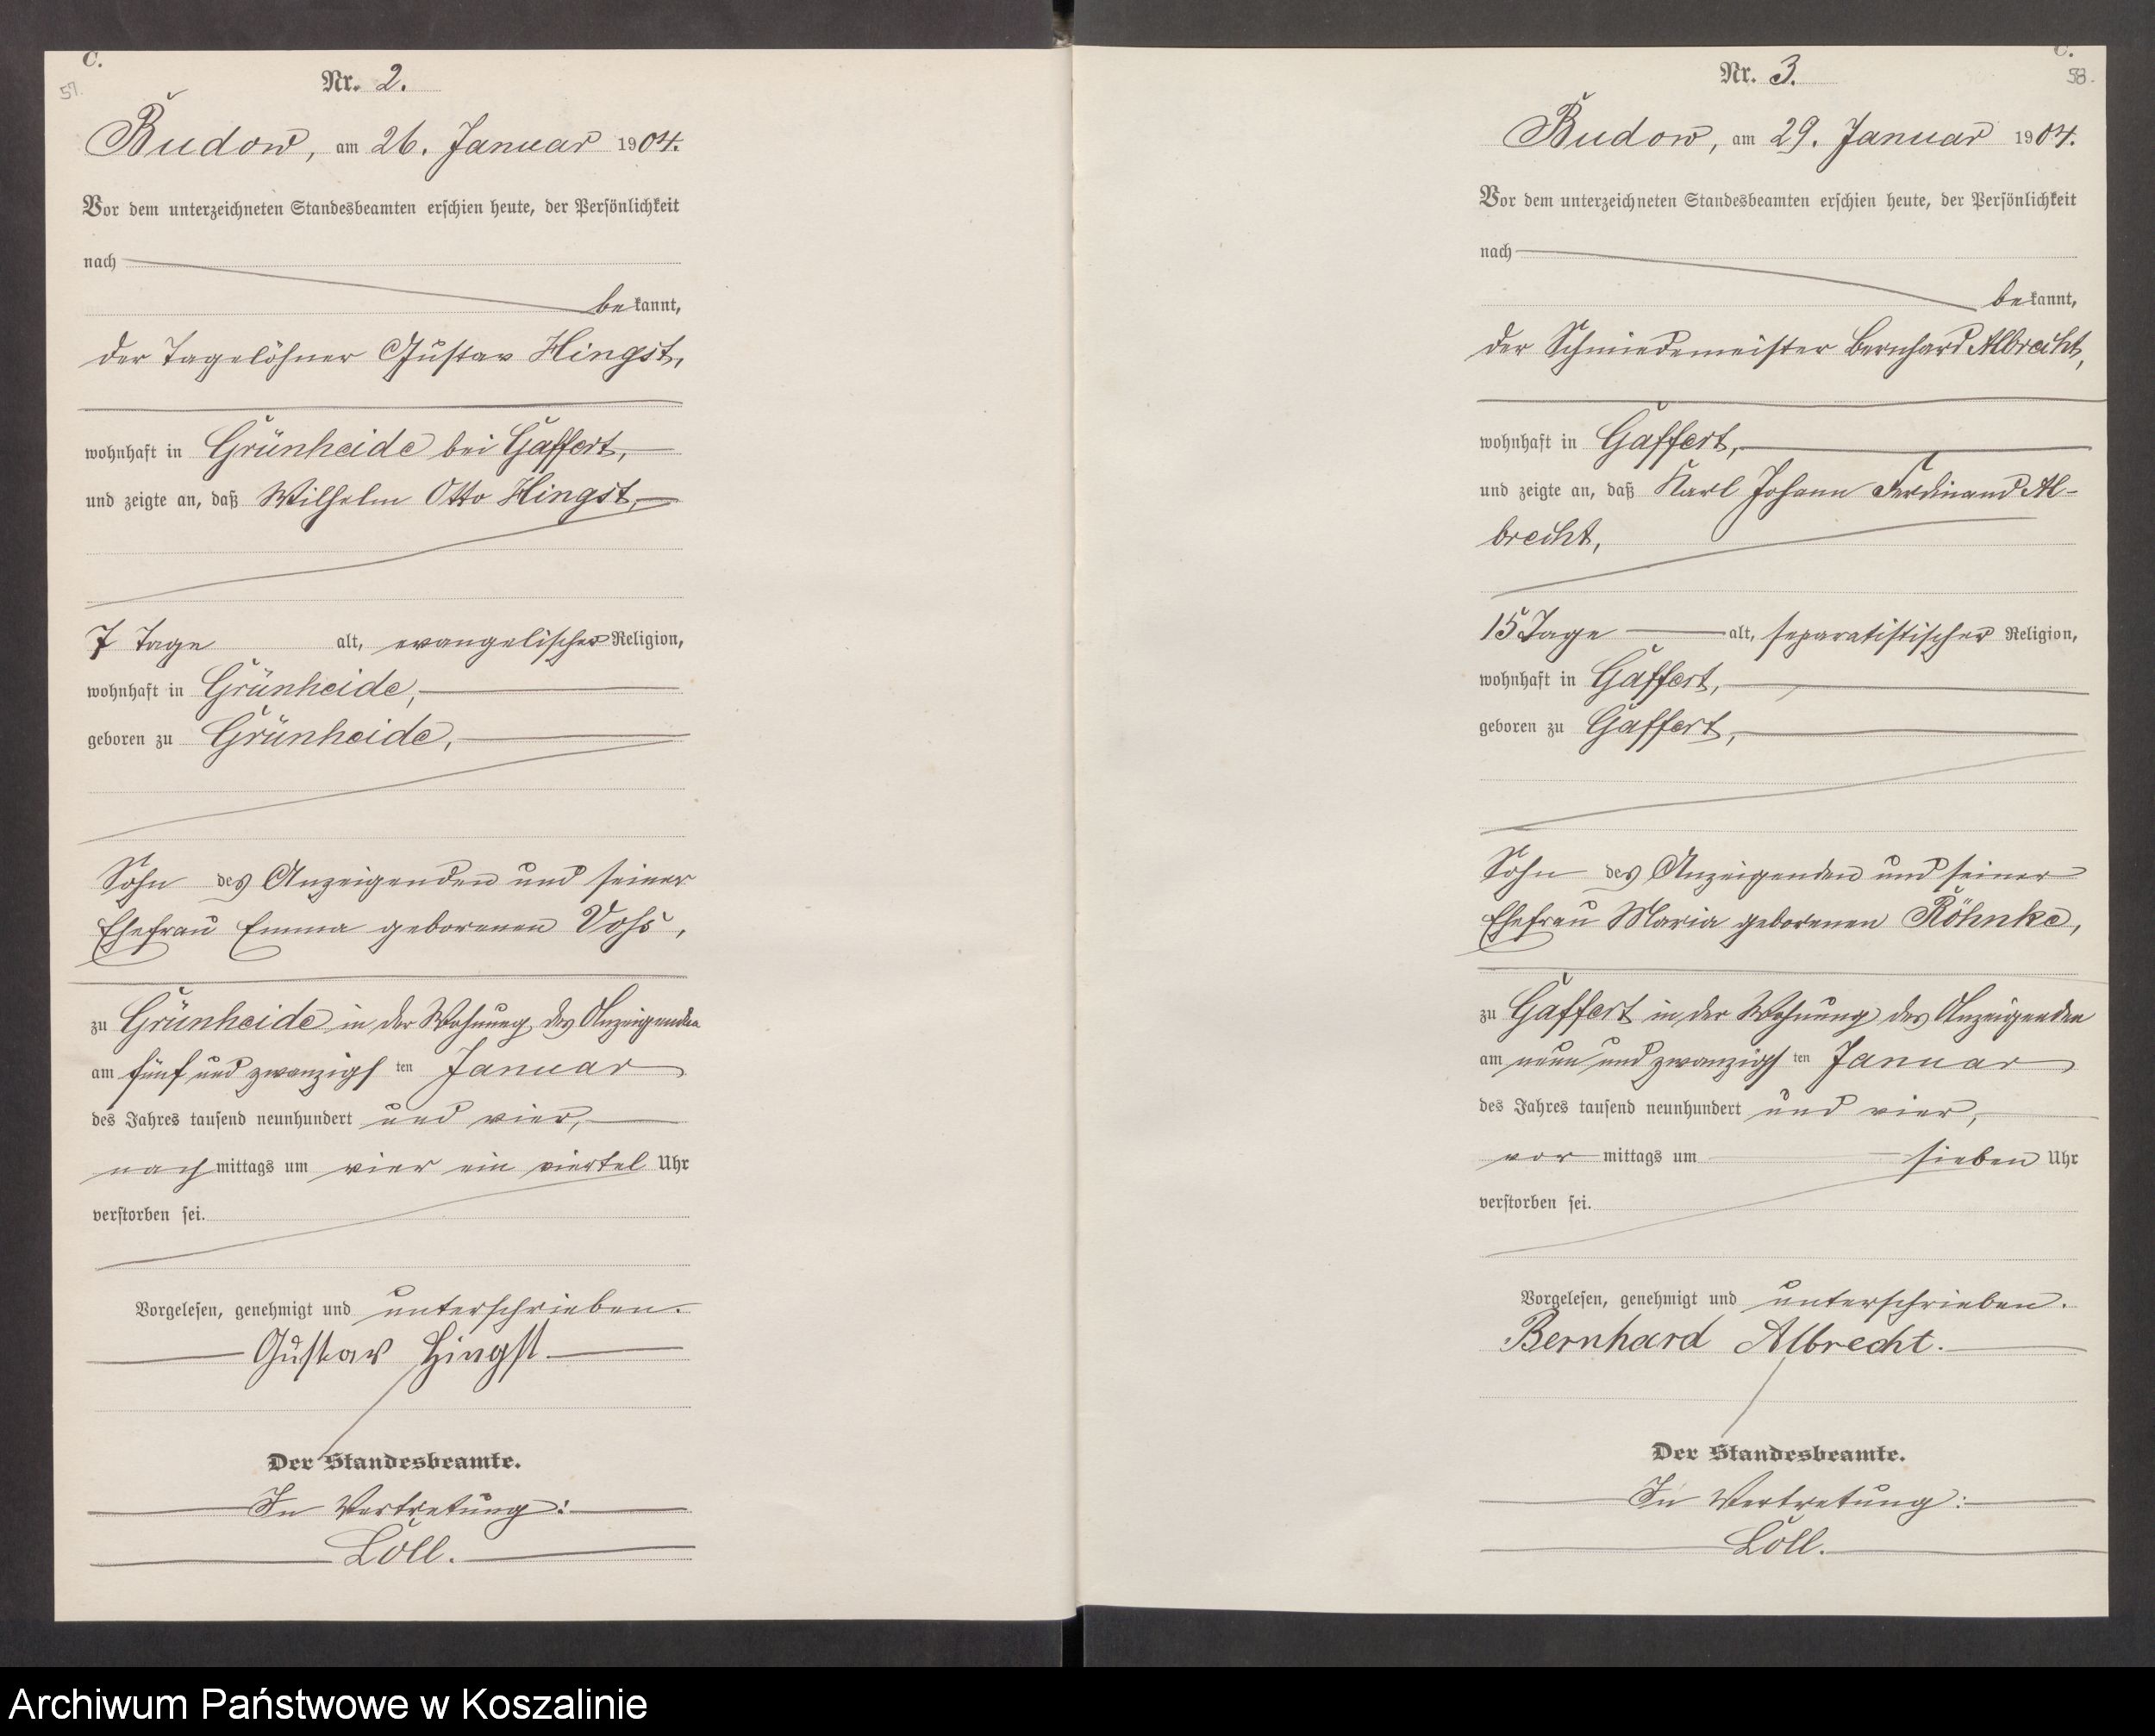 C.
57.
Nr. 2.
Budow, am 26. Januar 1904.
Vor dem unterzeichneten Standesbeamten erschien heute, der Persönlichkeit
nach
bekannt,
der Tagelöhner Gustav Hingst,
wohnhaft in Grünheide bei Gaffert,
und zeigte an, daß Wilhelm Otto Hingst,
7 Tage alt, evangelischer Religion,
wohnhaft in Grünheide,
geboren zu Grünheide,
Sohn des Anzeigenden und seiner
Ehefrau Emma geborenen Voß,
zu Grünheide in der Wohnung des Anzeigenden
am fünf und zwanzigsten Januar
des Jahres tausend neunhundert und vier,
nachmittags um vier ein viertel Uhr
verstorben sei.
Vorgelesen, genehmigt und unterschrieben.
Gustav Hingst.
Der Standesbeamte.
In Vertretung:
Löll.
C.
58.
Nr. 3.
Budow, am 29. Januar 1904.
Vor dem unterzeichneten Standesbeamten erschien heute, der Persönlichkeit
nach
bekannt,
der Schmiedemeister Bernhard Albrecht,
wohnhaft in Gaffert,
und zeigte an, daß Karl Johann Ferdinand Al-
brecht,
15 Tage alt, separatistischer Religion,
wohnhaft in Gaffert,
geboren zu Gaffert,
Sohn des Anzeigenden und seiner
Ehefrau Maria geborenen Röhnke,
zu Gaffert in der Wohnung des Anzeigenden
am neun und zwanzigsten Januar
des Jahres tausend neunhundert und vier,
vormittags um sieben Uhr
verstorben sei.
Vorgelesen, genehmigt und unterschrieben.
Bernhard Albrecht.
Der Standesbeamte.
In Vertretung:
Löll.
Archiwum Państwowe w Koszalinie